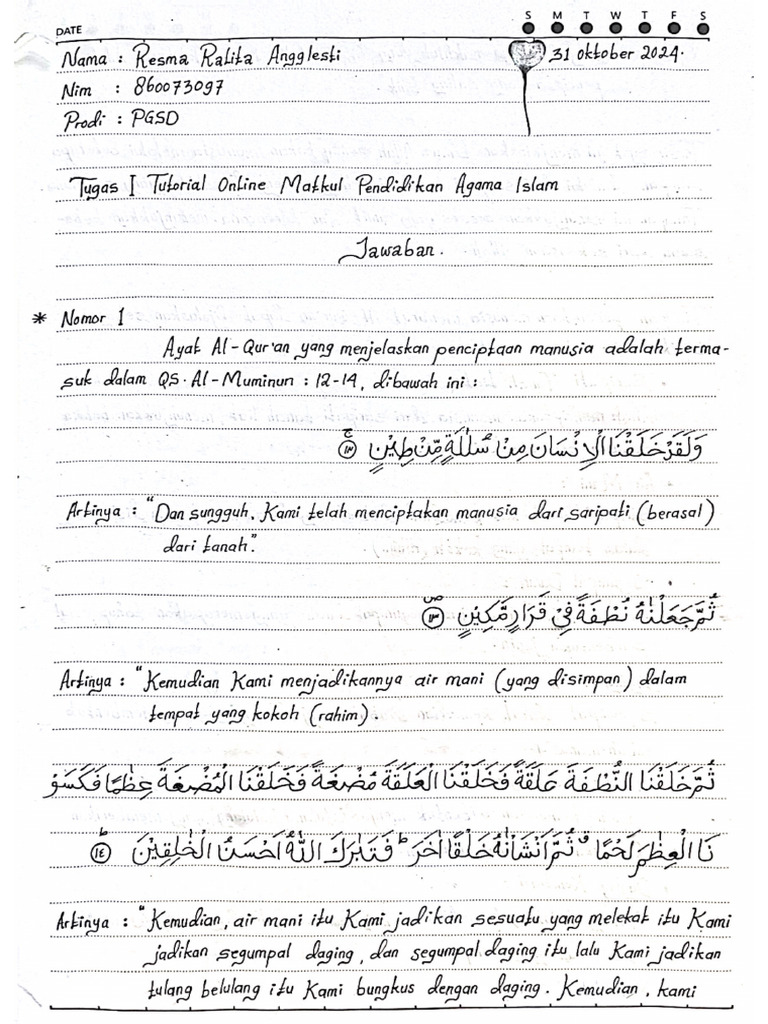 S M T W T F S
DATE
Nama : Resma Ralita Angglesti 31 Oktober 2024.
Nim : 860073097
Prodi : PGSD
Tugas I Tutorial Online Matkul Pendidikan Agama Islam
Jawaban.
* Nomor 1
Ayat Al-Qur'an yang menjelaskan penciptaan manusia adalah terma-
suk dalam QS. Al-Muminun : 12-14, dibawah ini :
وَلَقَدْ خَلَقْنَا الْاِنْسَانَ مِنْ سُلٰلَةٍ مِّنْ طِيْنٍ ۚ ﴿١٢﴾
Artinya : "Dan sungguh, Kami telah menciptakan manusia dari saripati (berasal)
dari tanah".
ثُمَّ جَعَلْنٰهُ نُطْفَةً فِيْ قَرَارٍ مَّكِيْنٍ ۖ ﴿١٣﴾
Artinya : "Kemudian Kami menjadikannya air mani (yang disimpan) dalam
tempat yang kokoh (rahim).
ثُمَّ خَلَقْنَا النُّطْفَةَ عَلَقَةً فَخَلَقْنَا الْعَلَقَةَ مُضْغَةً فَخَلَقْنَا الْمُضْغَةَ عِظٰمًا فَكَسَوْ
نَا الْعِظٰمَ لَحْمًا ۛ ثُمَّ اَنْشَأْنٰهُ خَلْقًا اٰخَرَ ۗ فَتَبٰرَكَ اللّٰهُ اَحْسَنُ الْخٰلِقِيْنَ ۗ ﴿١٤﴾
Artinya : "Kemudian, air mani itu Kami jadikan sesuatu yang melekat itu Kami
jadikan segumpal daging, dan segumpal daging itu lalu Kami jadikan
tulang belulang itu Kami bungkus dengan daging. Kemudian, kami